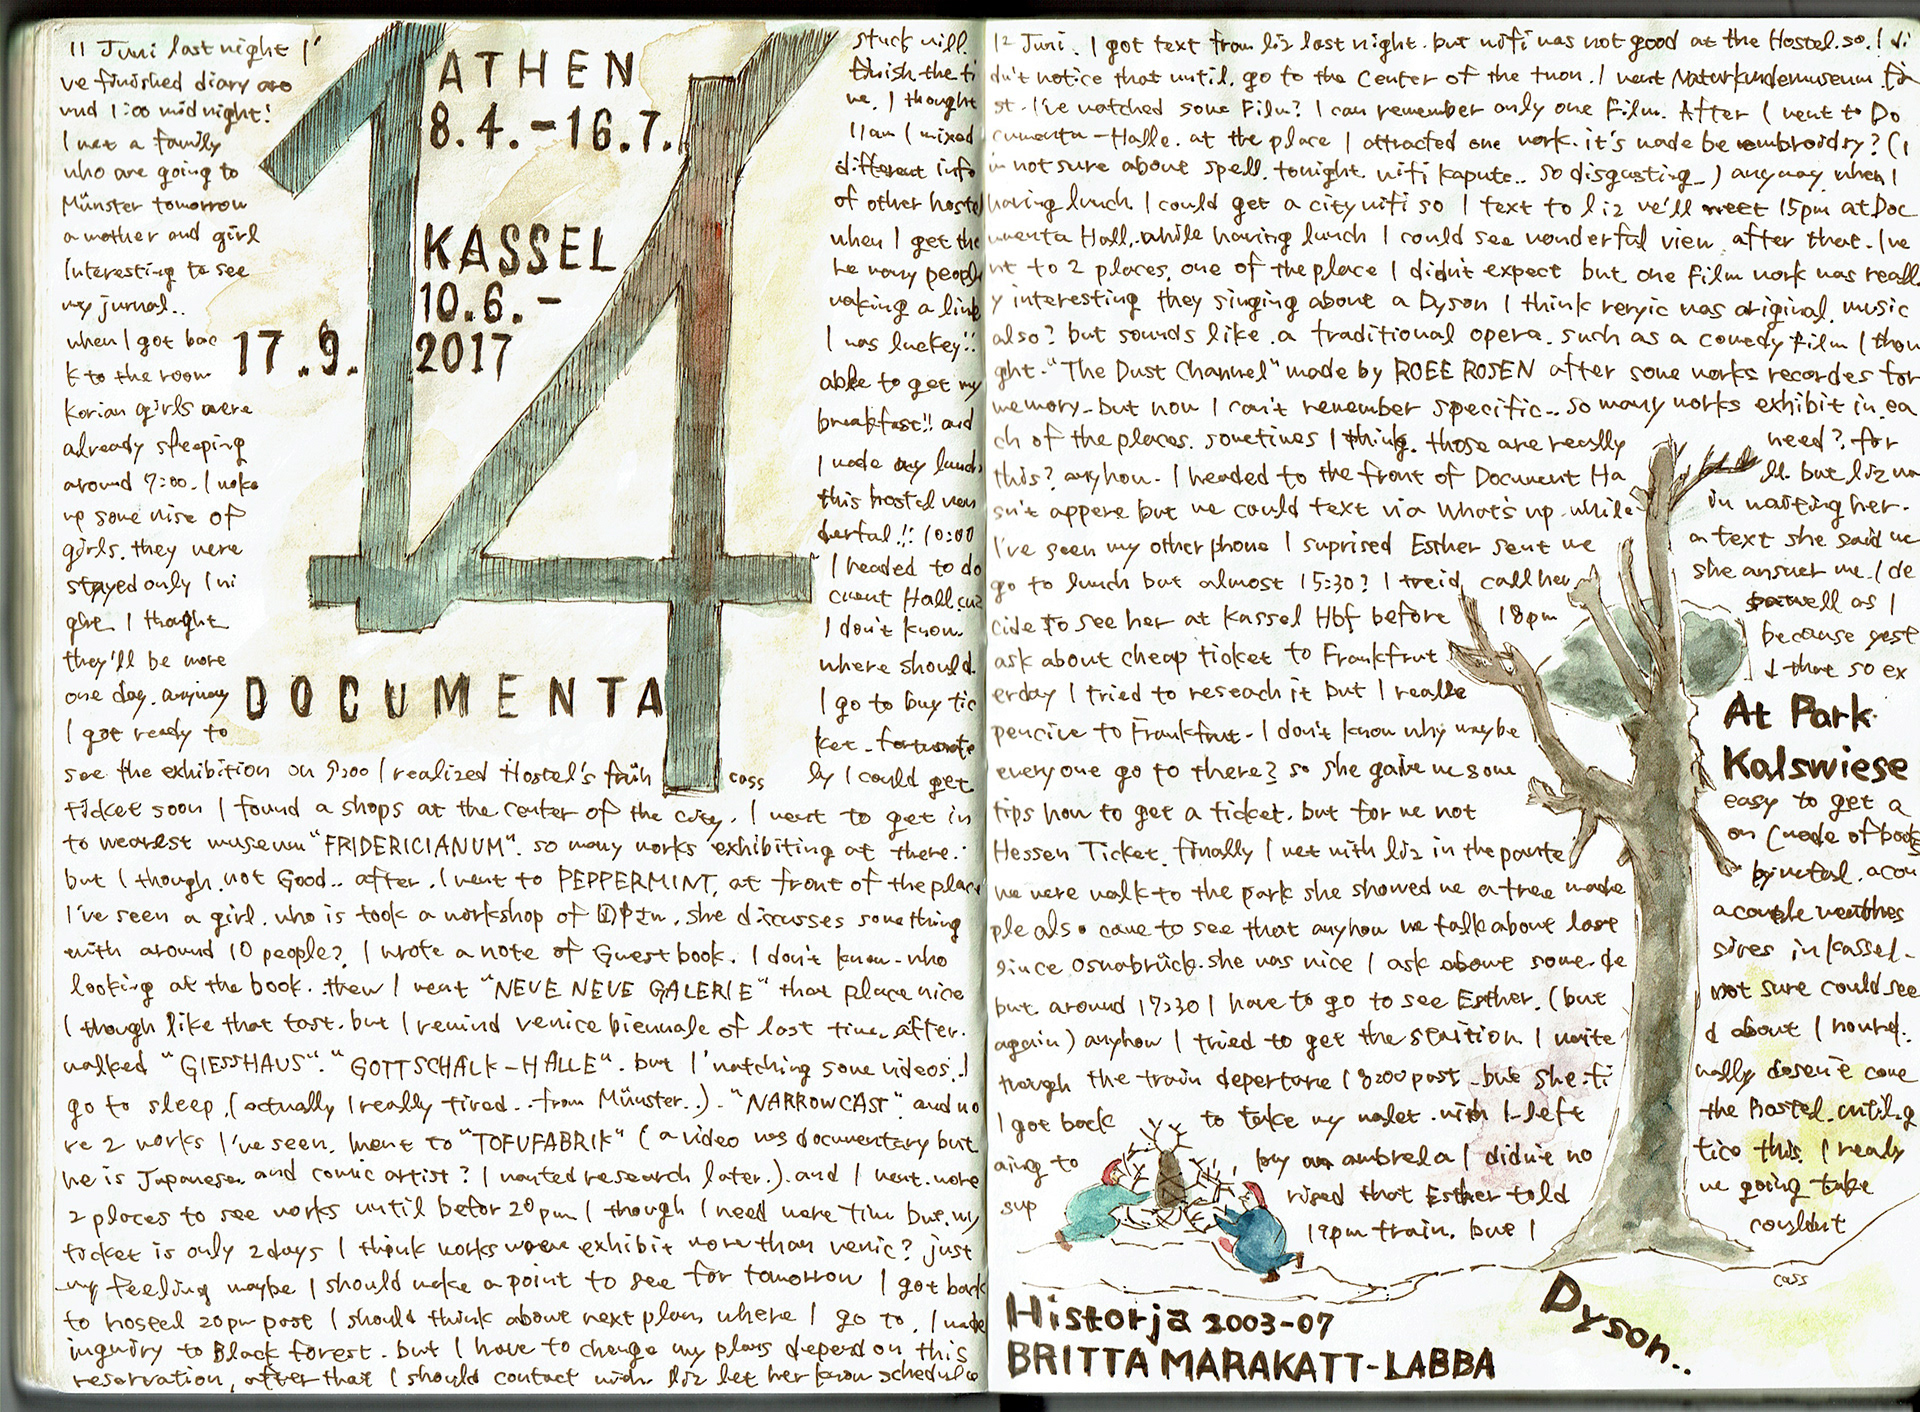 11 Juni last night I'
ve finished diary aro
und 1:00 mid night!
I met a family
who are going to
Münster tomorrow
a mother and girl
Interesting to see
my jurnal..
when I got bac
k to the room
Korian girls were
already sleeping
around 7:00. I woke
up some nise of
girls. they were
stayed only 1 ni
ght. I thought
they'll be more
one day. anyway
I got ready to
see the exhibition on 9:00 I realized Hostel's früh
stuck will
finish the ti
me. I thought
11am I mixed
different info
of other hostel
when I get the
re many people
making a line
I was luckey!!
able to get my
breakfast!! and
I made my lunch
this hostel won
derful!! 10:00
I headed to do
cument Hall cuz
I don't know
where should
I go to buy tic
ket. fortunate
ly I could get
ticket soon I found a shops at the center of the city. I went to get in
to wearest museum "FRIDERICIANUM". so many works exhibiting at there.
but I though not Good.. after. I went to PEPPERMINT, at front of the place
I've seen a girl. who is took a workshop of. she discusses something
with around 10 people? I wrote a note of Guest book. I don't know who
looking at the book. then I went "NEUE NEUE GALERIE" that place nice
I though like that tast. but I remind venice biennale of last time. after.
walked "GIESSHAUS". "GOTTSCHALK-HALLE". but I 'watching some videos. I
go to sleep. (actually I really tired.. from Münster..). "NARROWCAST" and mo
re 2 works I've seen. Iwent to "TOFUFABRIK" (a video was documentary but
he is Japanese and comic artist? I wanted research later.). and I went more
2 places to see works until befor 20pm I though I need more tim but. my
ticket is only 2days I think works were exhibit more than venic? just
my feeling maybe I should make a point to see for tomorrow I got back
to hostel 20pm past I should think about next plan where I go to. I made
inquiry to Black forest. but I have to change my plans depend on this
reservation, after that I should contact with liz let her know schedule
ATHEN
8.4.-16.7.
KASSEL
10.6.-
17.9.
2017
14
DOCUMENTA
cass
12 Juni. I got text from liz last night. but wifi was not good at the Hostel. so. I di
dn't notice that until. go to the Center of the tuon. I went Naturkundemuseum fir
st. I've watched some Film? I can remember only one Film. After I went to Do
cumenta-Halle. at the place I attracted one work. it's made be embroidry? (I
m not sure about spell. tonight wifi kapute.. so disgusting..) anyway when I
having lunch. I could get a city wifi so I text to liz we'll meet 15pm at Doc
umenta Hall. while having lunch I could see wonderful view. after that. I we
nt to 2 places. one of the place I didn't expect but one film work was reall
y interesting they singing about a Dyson I think reryic was original. music
also? but sounds like a traditional opera. such as a comedy film I thou
ght. "The Dust Channel" made by ROEE ROSEN after some works recordes for
memory. but now I can't remember specific.. so many works exhibit in ea
ch of the places. sometimes I think. those are really need? for
this? anyhow. I headed to the front of Document Ha ll. but liz wa
sn't appere but we could text via What's up while in waiting her.
I've seen my other phone I suprised Esther sent me on text she said we
go to lunch but almost 15:30? I treid call her she answer me. I de
cide to see her at Kassel Hbf before 18pm well as I
ask about cheap ticket to Frankfrut because yest
erday I tried to reseach it but I realle d that so ex
pencive to Frankfrut. I don't know why maybe
everyone go to there? so she gave me some
tips how to get a ticket. but for me not easy to get a
Hessen Ticket. finally I met with liz in the
we were walk to the park she showed me a tree made
ple also came to see that anyhow we talk about last
since Osnabrück. she was nice I ask about some de sires in Kassel.
but around 17:30 I have to go to see Esther. (but not sure could see
again) anyhow I tried to get the staition. I write
though the train deperture 18:00 past. but she. fi nally dosen't come
I got back to take my walet with I left the hostel. until. g
oing to buy an ambrela I didn't no tice this. I realy
sup rised that Esther told me going take
19pm train. but I couldn't
At Park
Kalswiese
cass
Dyson..
Historja 2003-07
BRITTA MARAKATT-LABBA